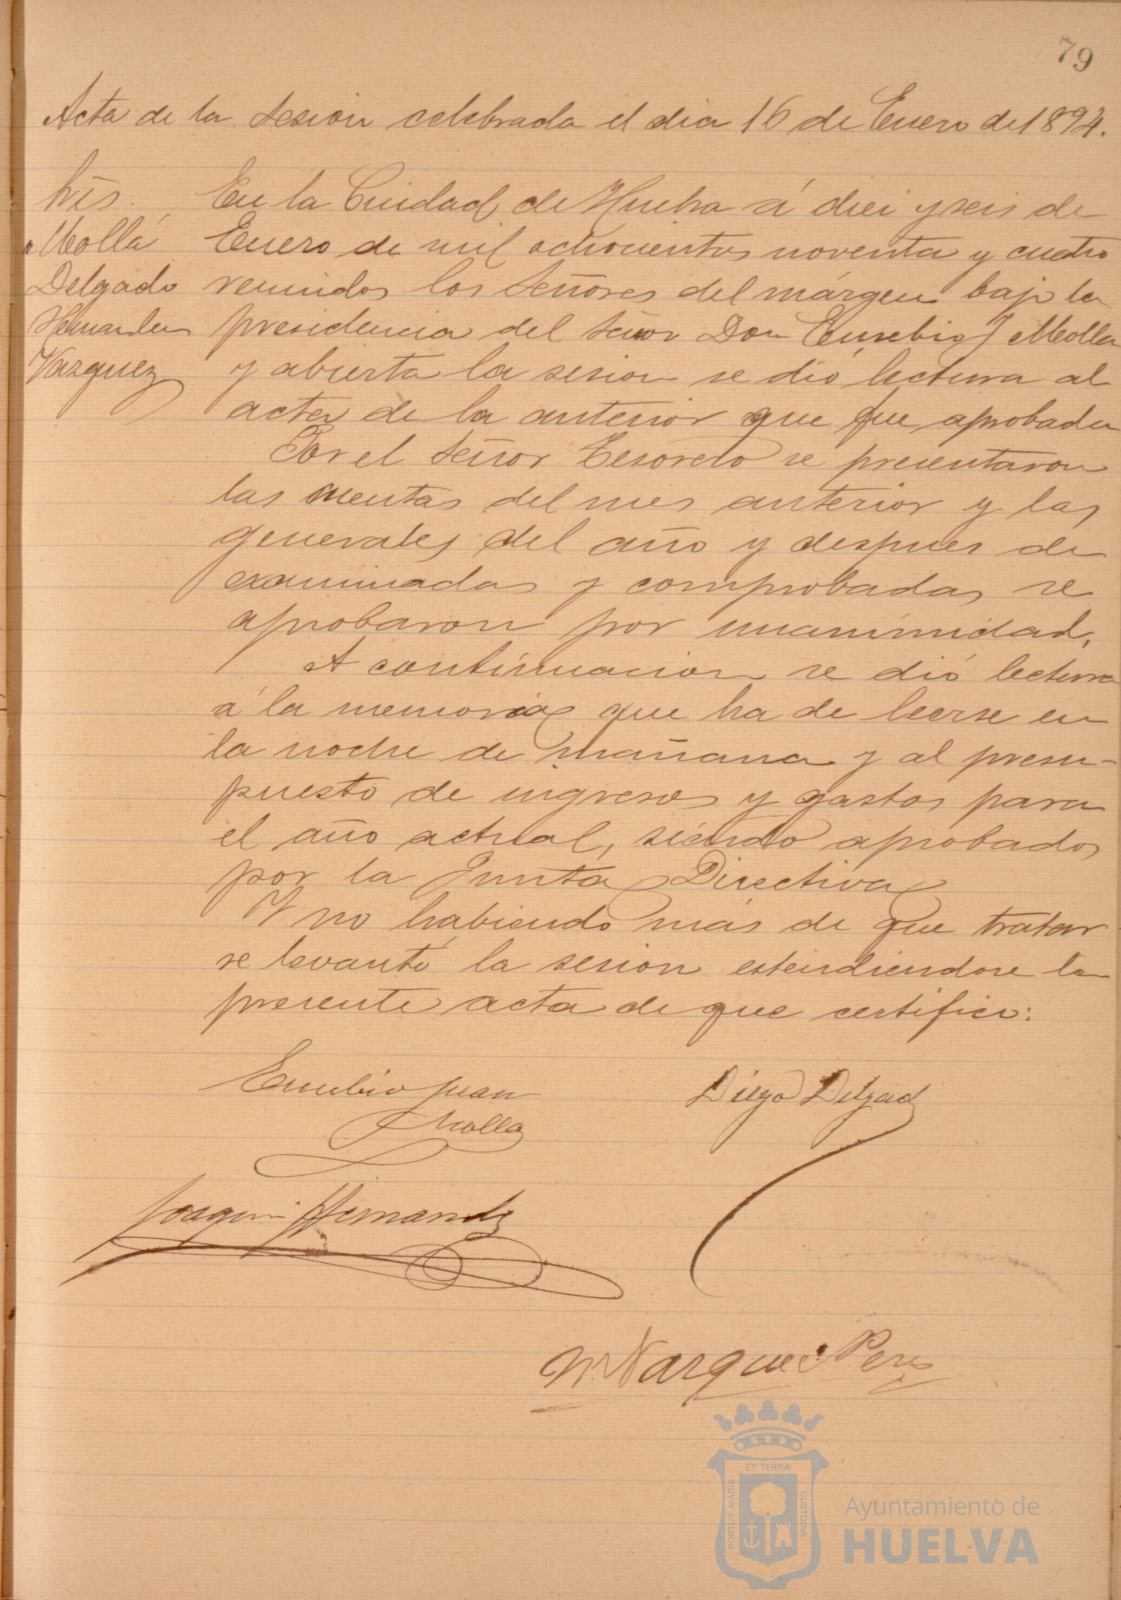 79
Acta de la sesion celebrada el dia 16 de Enero de 1894.
Mollá
Delgado
Hernandez
Vazquez
En la Ciudad de Huelva á diez y seis de
Enero de mil ochocientos noventa y cuatro
reunidos los Señores del márgen bajo la
presidencia del Señor Don Eusebio J Molla
y abierta la sesion se dió lectura al
acta de la anterior que fue aprobada
Por el Señor Tesorero se presentaron
las cuentas del mes anterior y las
generales del año y despues de
examinadas y comprobadas se
aprobaron por unanimidad.
A continuacion se dió lectura
á la memoria que ha de leerse en
la noche de mañana y al presu-
puesto de ingresos y gastos para
el año actual, siendo aprobados
por la Junta Directiva
Y no habiendo más de que tratar
se levantó la sesion estendiendose la
presente acta de que certifico:
Eusebio Juan
Molla
Diego Delgado
Joaquin Hernandez
M Vazquez Perez
PORTUS MARIS
ET TERRÆ
CUSTODIA
Ayuntamiento de
HUELVA